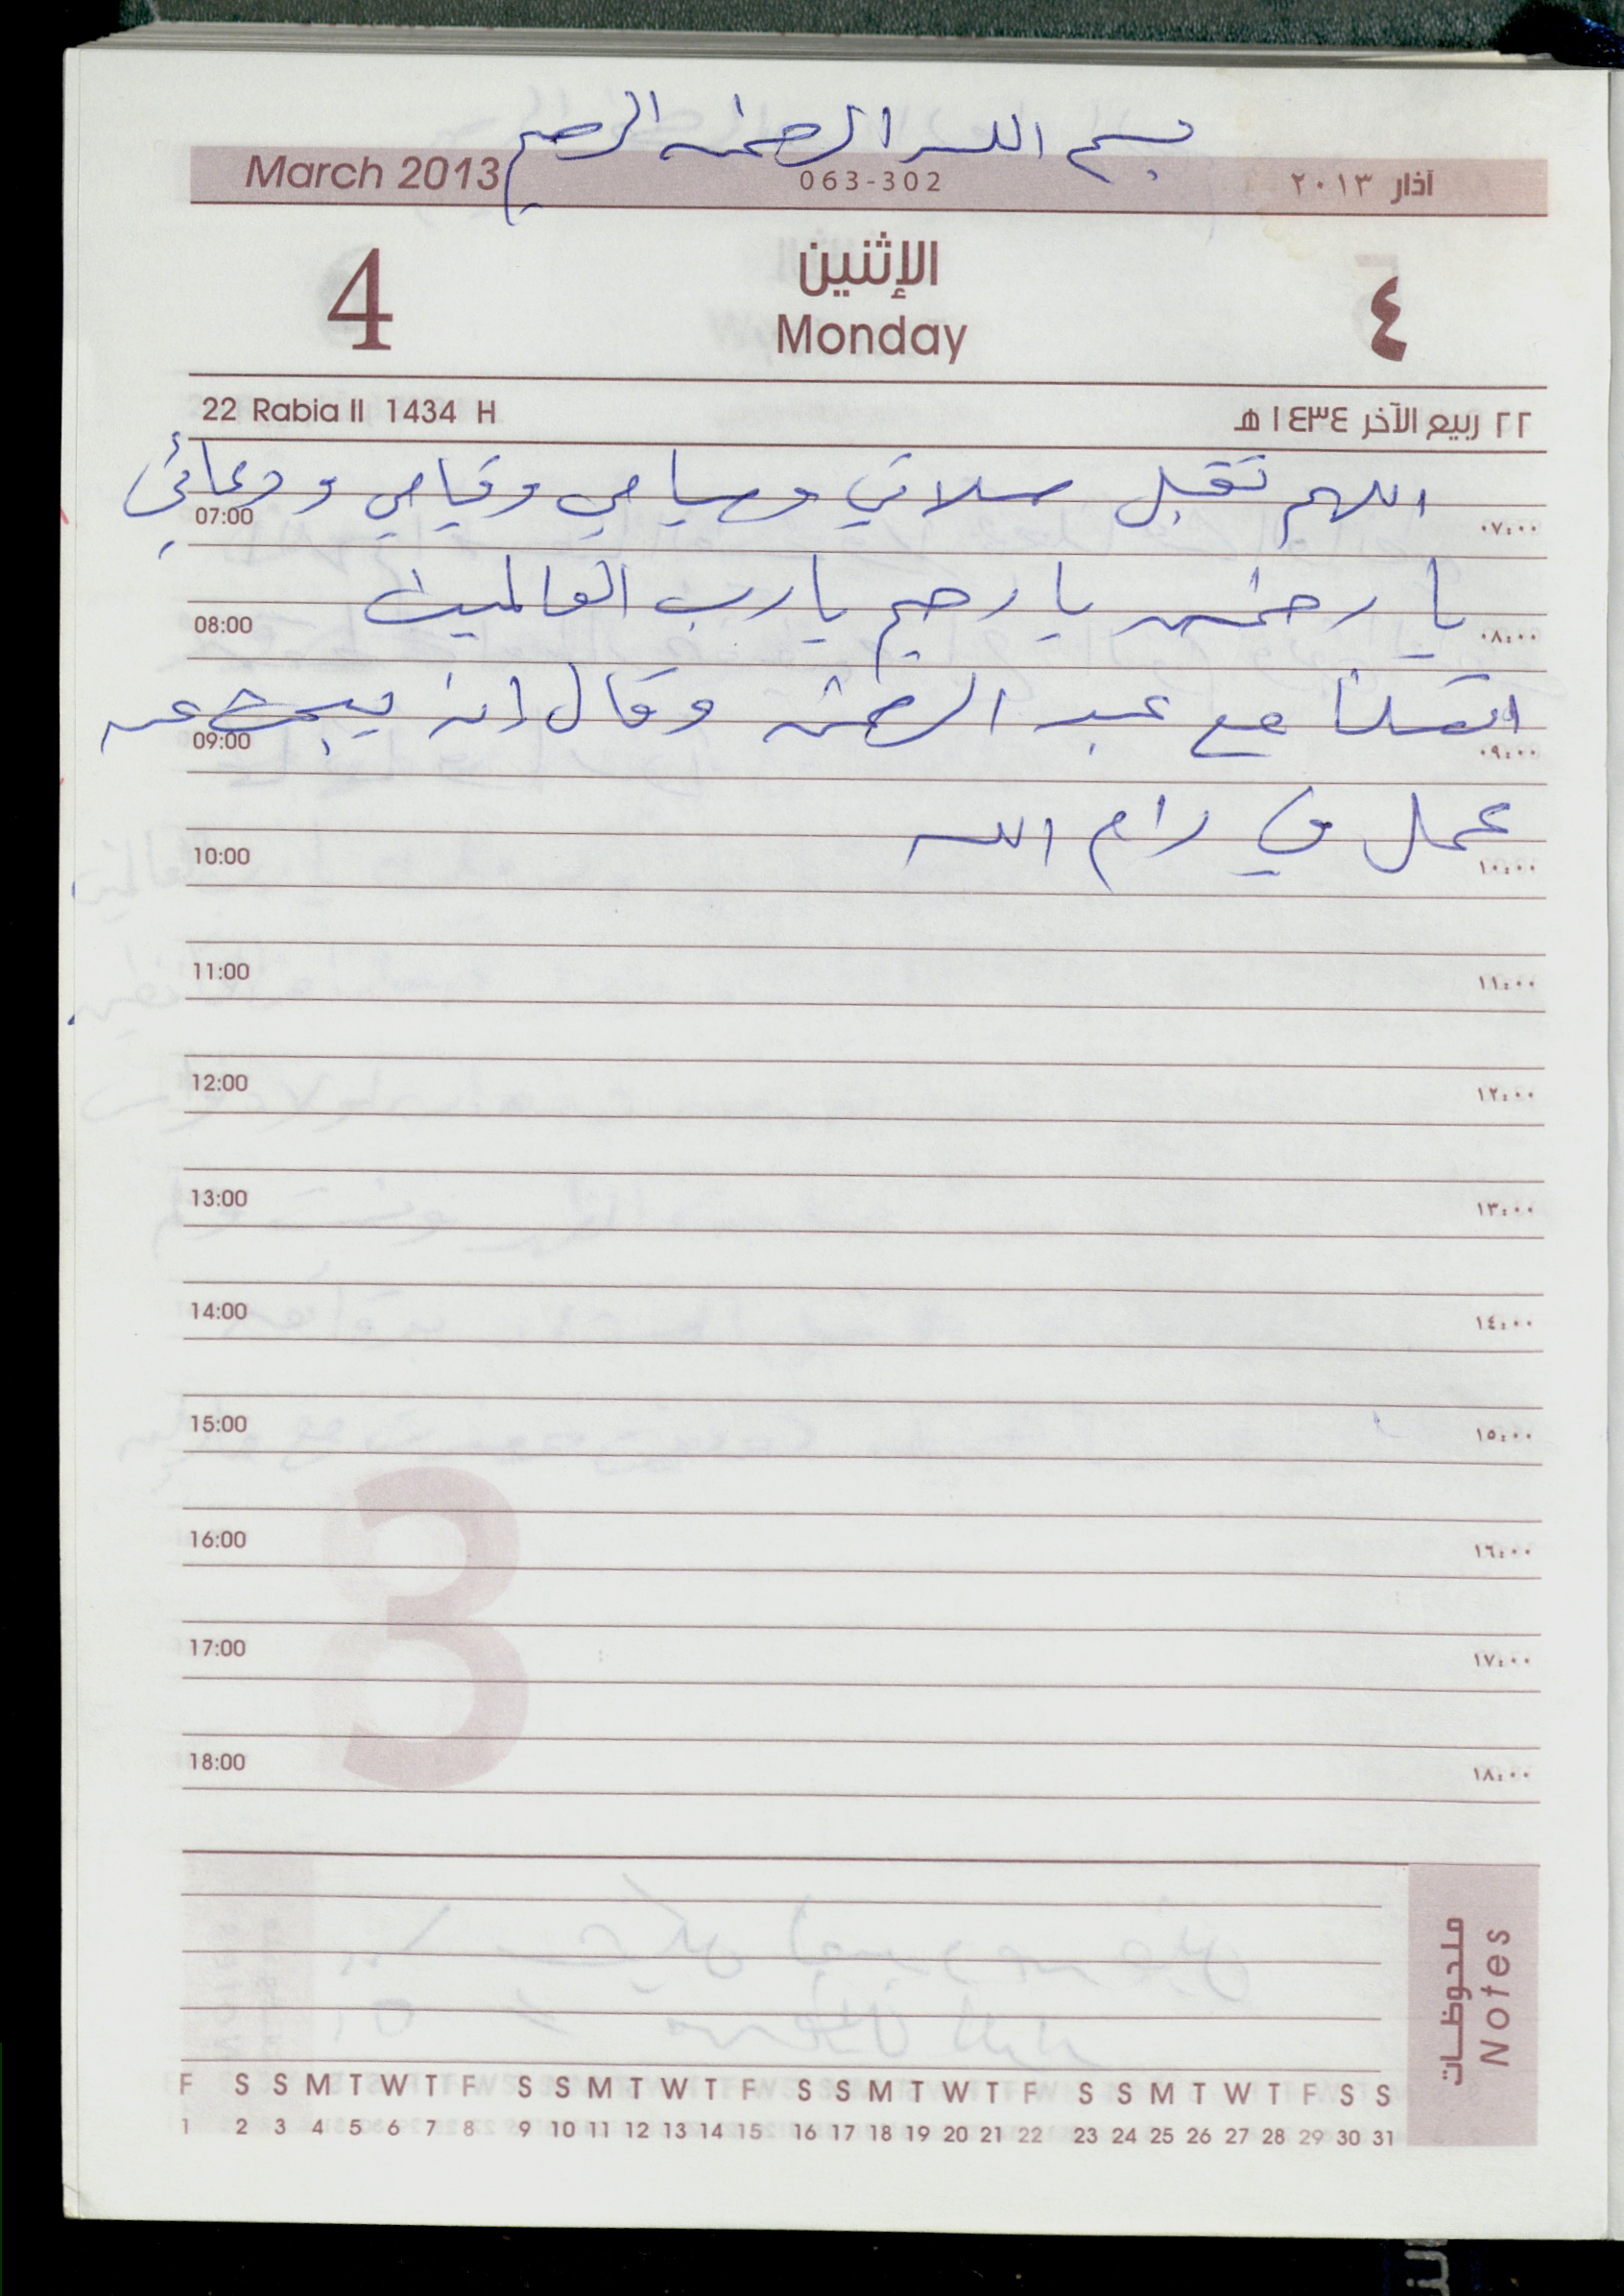 بسم الله الرحمن الرحيم
March 2013 063-302 آذار ٢٠١٣
4 الإثنين ٤
Monday
22 Rabia II 1434 H ٢٢ ربيع الآخر ١٤٣٤ هـ
اللهم تقبل صلاتي وصيامي وقيامي ودعائي
07:00 ٠٧:٠٠
يا رحمن يا رحيم يا رب العالمين
08:00 ٠٨:٠٠
اتصلنا مع عبد الرحمن وقال انه يبحث عن
09:00 ٠٩:٠٠
عمل في رام الله
10:00 ١٠:٠٠
11:00 ١١:٠٠
12:00 ١٢:٠٠
13:00 ١٣:٠٠
14:00 ١٤:٠٠
15:00 ١٥:٠٠
16:00 ١٦:٠٠
17:00 ١٧:٠٠
18:00 ١٨:٠٠
3
ملحوظات
Notes
F S S M T W T F S S M T W T F S S M T W T F S S M T W T F S S
1 2 3 4 5 6 7 8 9 10 11 12 13 14 15 16 17 18 19 20 21 22 23 24 25 26 27 28 29 30 31